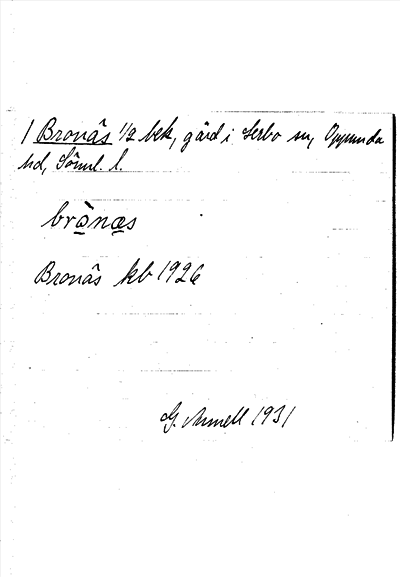 1 Bronäs 1/2 bek, gård i Lerbo sn, Oppunda
hd, Söml. l.
brònæs
Bronäs kb 1926
G. Annell 1931